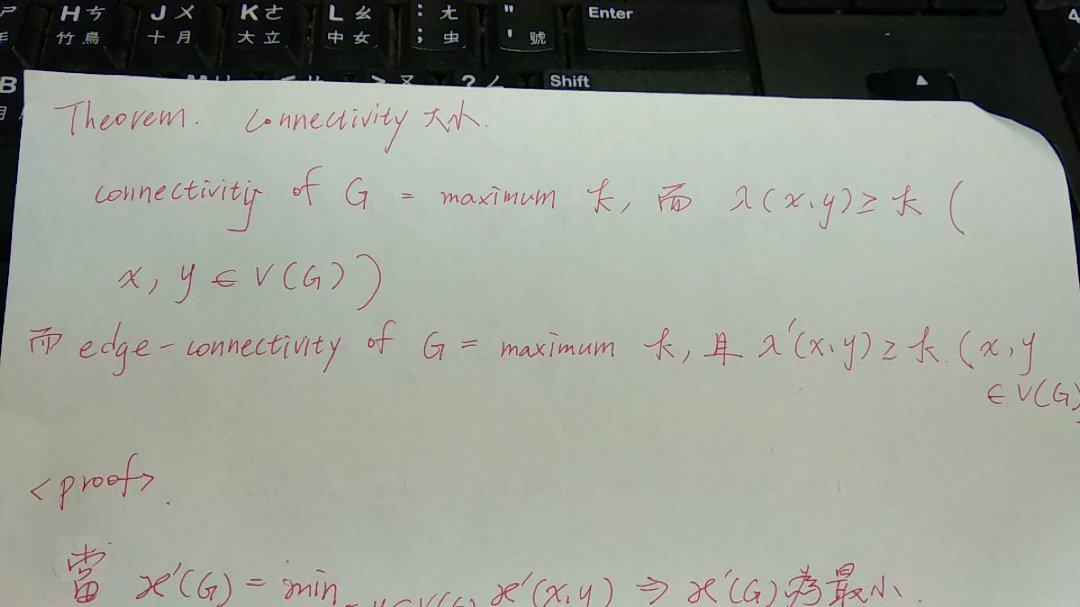 H ㄘ J ㄨ K ㄜ L ㄠ : ㄤ " Enter
竹 鳥 十 月 大 立 中 女 ; 虫 ' 號
B ? ㄥ Shift
Theorem. Connectivity 大小.
connectivity of G = maximum k, 而 λ(x,y) ≥ k (
x, y ∈ V(G))
而 edge-connectivity of G = maximum k, 且 λ'(x,y) ≥ k. (x,y
∈ V(G)
<proof>.
當 κ'(G) = min x,y∈V(G) κ'(x,y) ⇒ κ'(G) 為最小.